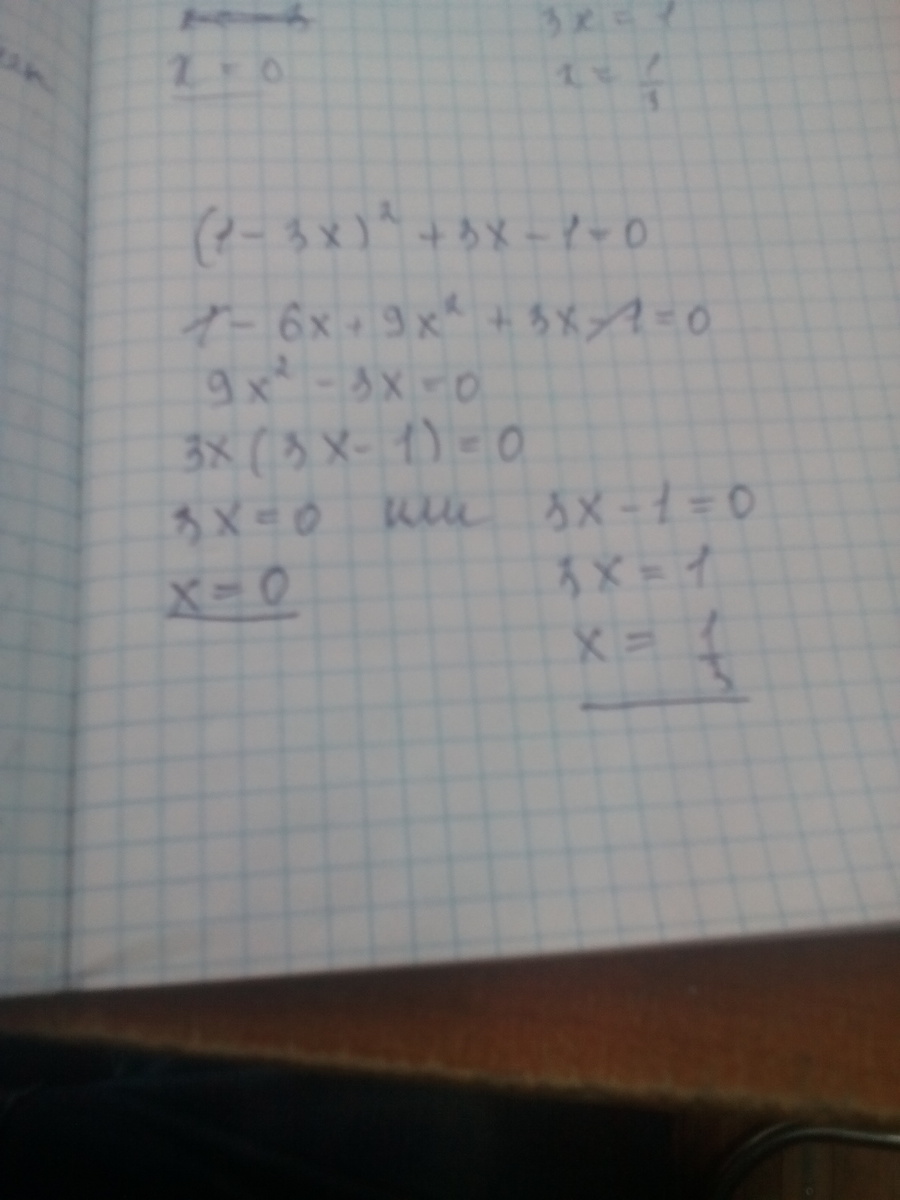 3x = 1
x = 0
x = 1/3
(1 - 3x)² + 3x - 1 = 0
1 - 6x + 9x² + 3x - 1 = 0
9x² - 3x = 0
3x(3x - 1) = 0
3x = 0 или 3x - 1 = 0
3x = 1
x = 0
x = 1/3